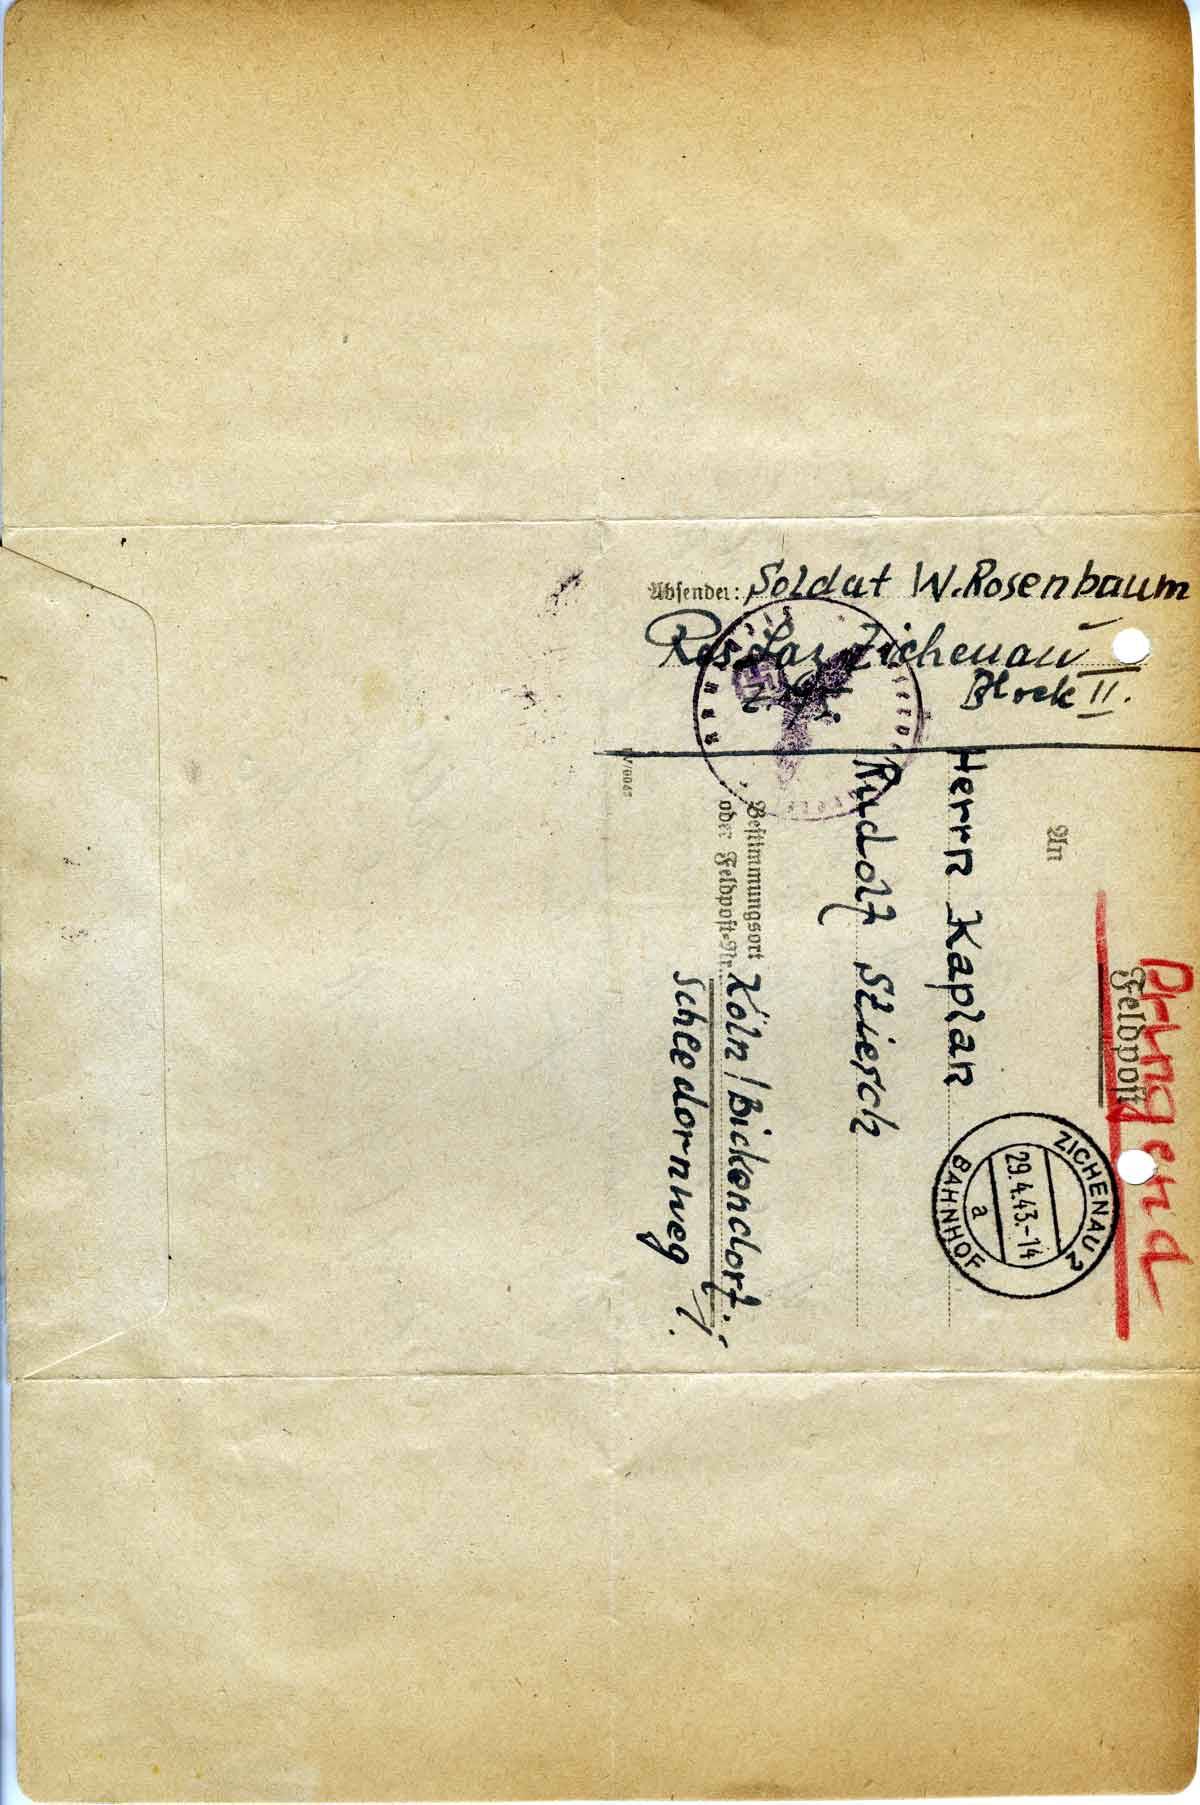 Absender: Soldat W. Rosenbaum
Res. Laz. Zichenau
Block II.
Feldpost
Dringend
ZICHENAU 2
29.4.43.-14
a
BAHNHOF
An
Herrn Kaplan
Rudolf Stiersch
Bestimmungsort
oder Feldpost=Nr.
Köln/Bickendorf.
Schleedornweg